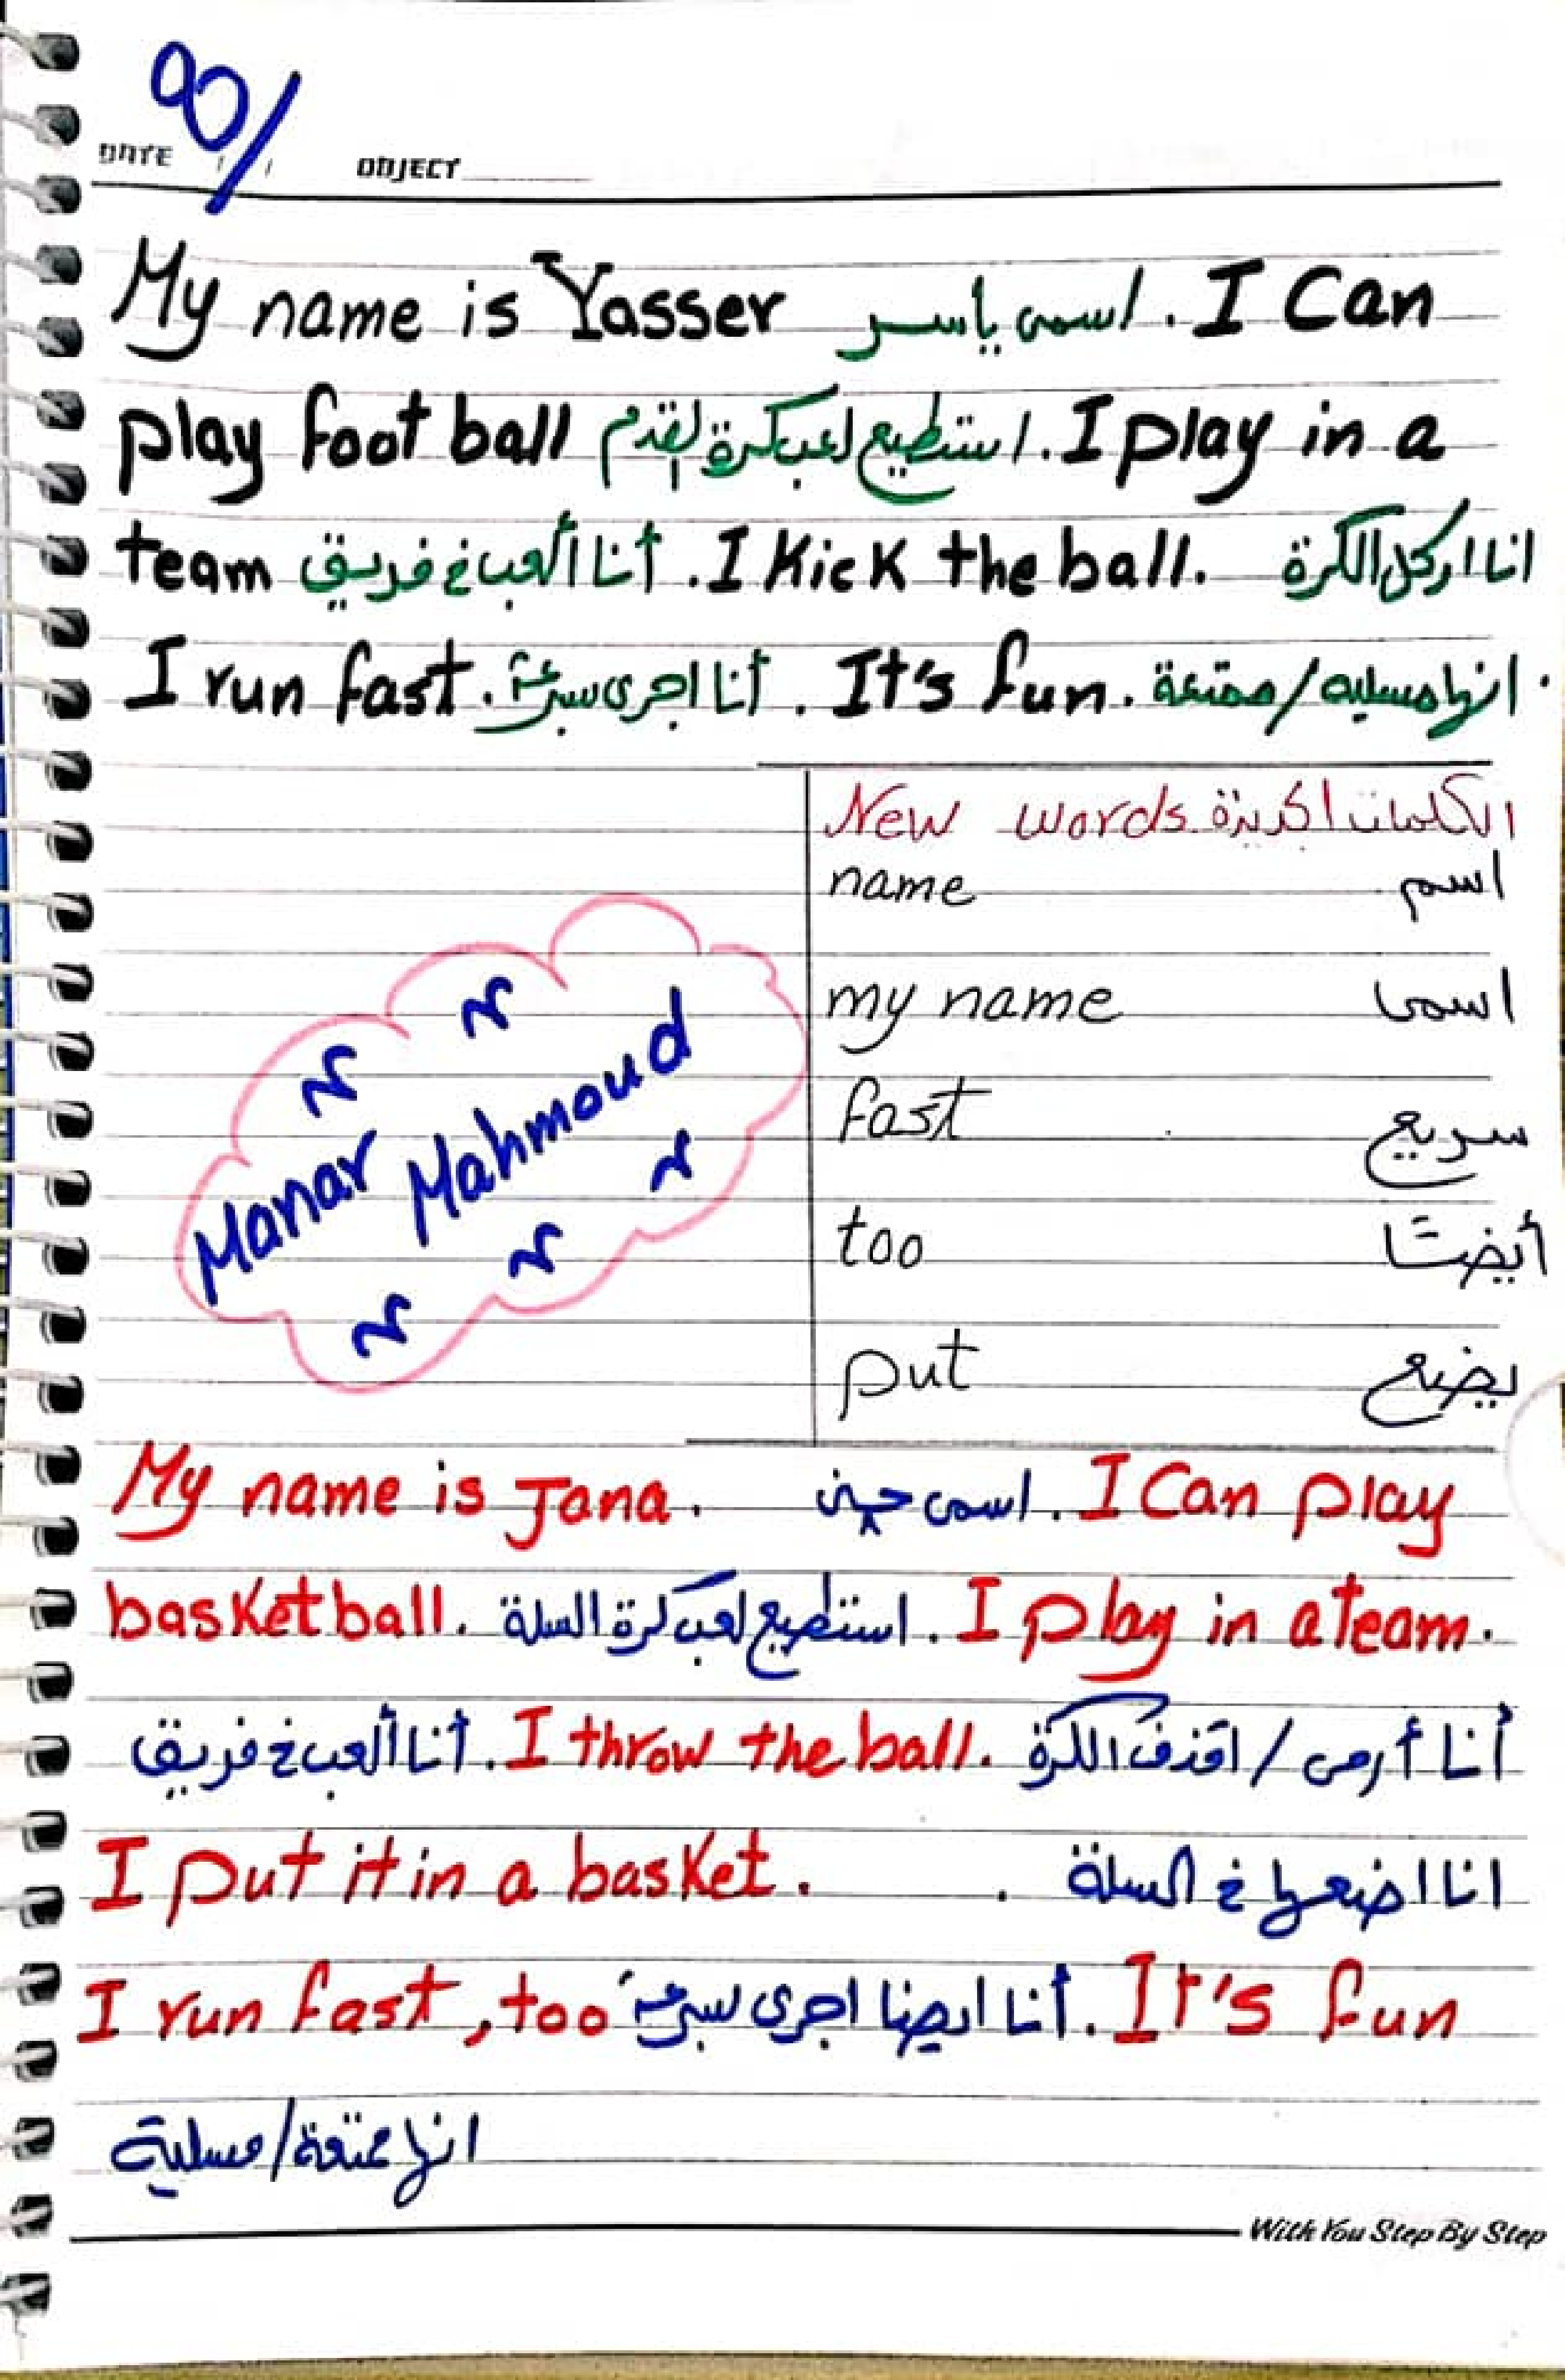 DATE / / OBJECT
My name is Yasser اسمى ياسر . I Can
play foot ball استطيع لعب كرة القدم . I play in a
team أنا ألعب فى فريق . I Kick the ball. انا اركل الكرة
I run fast. أنا اجرى بسرعة . It's fun. انها مسليه / ممتعة .
New words الكلمات الجديدة
name اسم
my name اسمى
fast سريع
too أيضًا
put يضع
Manar Mahmoud
My name is Jana. اسمى جينى . I Can play
basketball. استطيع لعب كرة السلة . I play in a team.
أنا ألعب فى فريق . I throw the ball. أنا أرمى / اقذف الكرة
I put it in a basket. انا اضعها فى السلة
I run fast, too أنا ايضا اجرى بسرعة . It's fun
انها ممتعة / مسلية
With You Step By Step